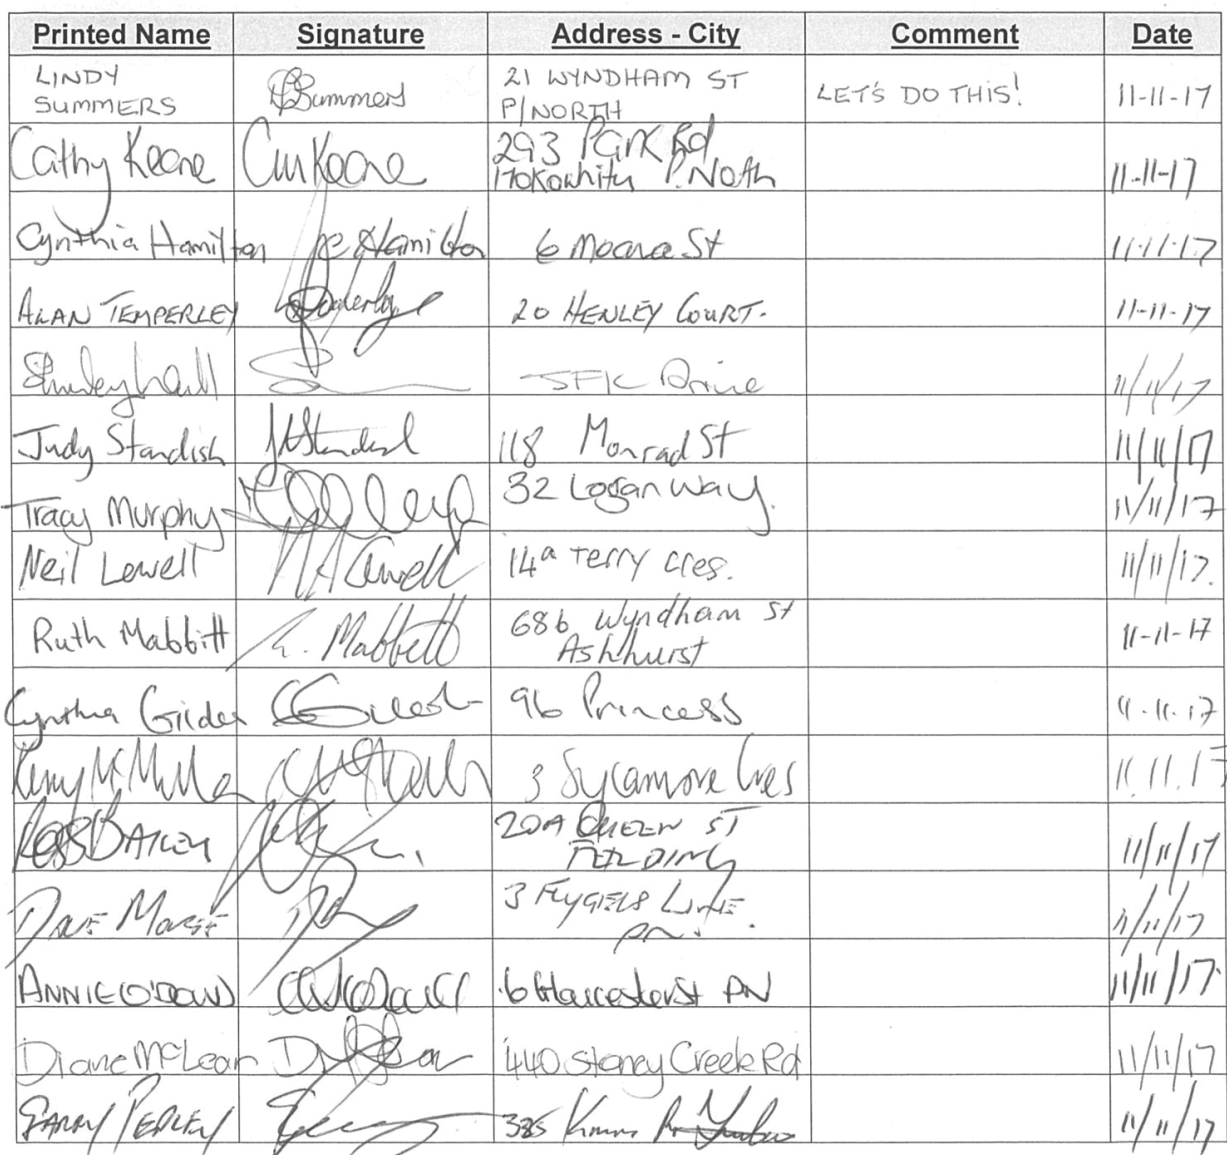 Printed Name Signature Address - City Comment Date
LINDY
SUMMERS
Summers
21 WYNDHAM ST
P/NORTH
LET'S DO THIS!
11-11-17
Cathy Keane Keane
293 Park Rd
Hokowhitu P.North
11-11-17
Cynthia Hamilton Hamilton 6 St 11.11.17
ALAN TEMPERLEY 20 HENLEY COURT. 11-11-17
JFK Drive 11/11/17
Judy Standish 118 Monrad St 11/11/17
Tracy Murphy 32 Logan Way. 11/11/17
Neil Lowell 14a Terry Cres. 11/11/17.
Ruth Mabbitt Mabbett
686 Wyndham St
Ashhurst
11-11-17
Cynthia 96 Princess 11.11.17
3 Sycamore Cres 11.11.17
ROSS BAILEY
20A QUEEN ST
FEILDING
11/11/17
DAVE
3 LINE
PN.
11/11/17
ANNIE O'DOWD 6 St PN 11/11/17
Diane McLean 440 Stoney Creek Rd 11/11/17
385 11/11/17